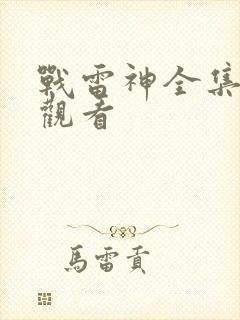 戰雷神全集
觀看
馬雷貢